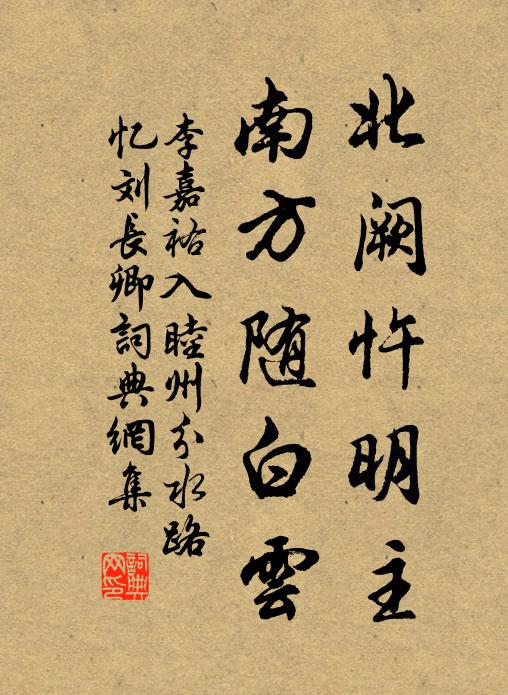 北阙忤明主
南方随白雲
李嘉祐入睦州分水路
忆刘長卿詞典網集
詞典
网印